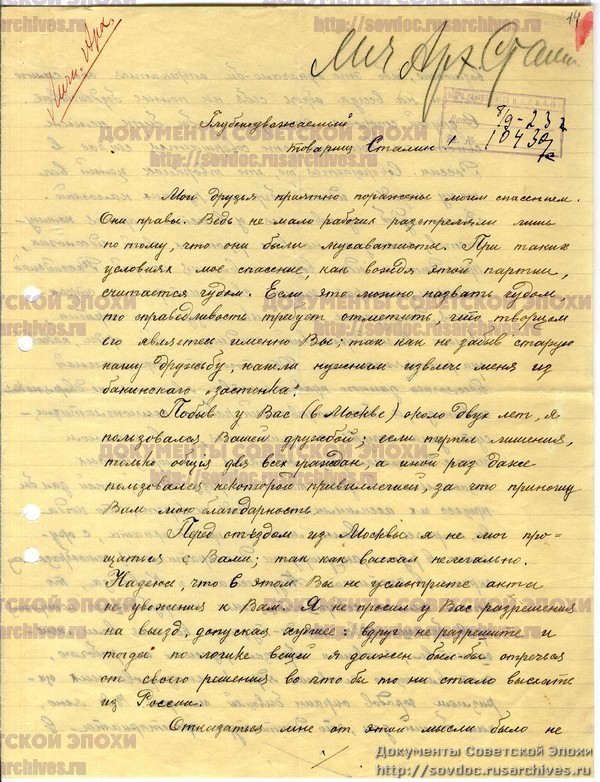 14
Личн. Арх.
Лич Арх Стали
8/9-23
10430
Глубокоуважаемый
товарищ Сталин!
Мои друзья приятно поражены моим спасением.
Они правы. Ведь не мало рабочих разстреляли лишь
по тому, что они были мусаватисты. При таких
условиях мое спасение, как вождя этой партии,
считается чудом. Если это можно назвать чудом,
то справедливость требует отметить, что творцом
его являетесь именно Вы; так как не забыв старую
нашу дружбу, нашли нужным извлечь меня из
бакинскаго „застенка“.
Побыв у Вас (в Москве) около двух лет, я
пользовался Вашей дружбой; если терпел лишения,
только общия для всех граждан, а иной раз даже
пользовался некоторой привиллегией, за что приношу
Вам мою благодарность.
Перед отъездом из Москвы я не мог про-
щаться с Вами; так как выехал нелегально.
Надеюсь, что в этом Вы не усмотрите акта
не уважения к Вам. Я не просил у Вас разрешения
на выезд, допуская худшее: вдруг не разрешите и
тогда по логике вещей я должен был-бы отречься
от своего решения во что бы то ни стало выехать
из России.
Отказаться мне от этой мысли было не
ДОКУМЕНТЫ СОВЕТСКОЙ ЭПОХИ
http://sovdoc.rusarchives.ru
Документы Советской Эпохи
http://sovdoc.rusarchives.ru